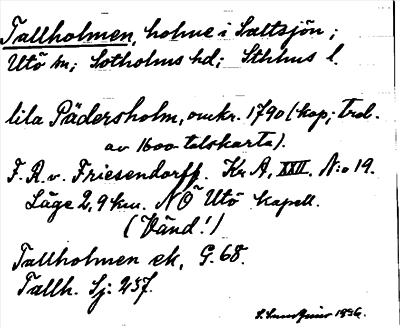 Tallholmen, holme i Saltsjön;
Utö sn; Sotholms hd; Sthlms l.
lila Pädersholm, omkr. 1790 (kop; trol.
av 1600-talskarta).
F. R. v. Friesendorff. Kr. A, XXII, N:o 19.
Läge 2,9 km. NÖ Utö kapell.
(Vänd!)
Tallholmen ek, G. 68.
Tallh. Sj: 257.
1896.